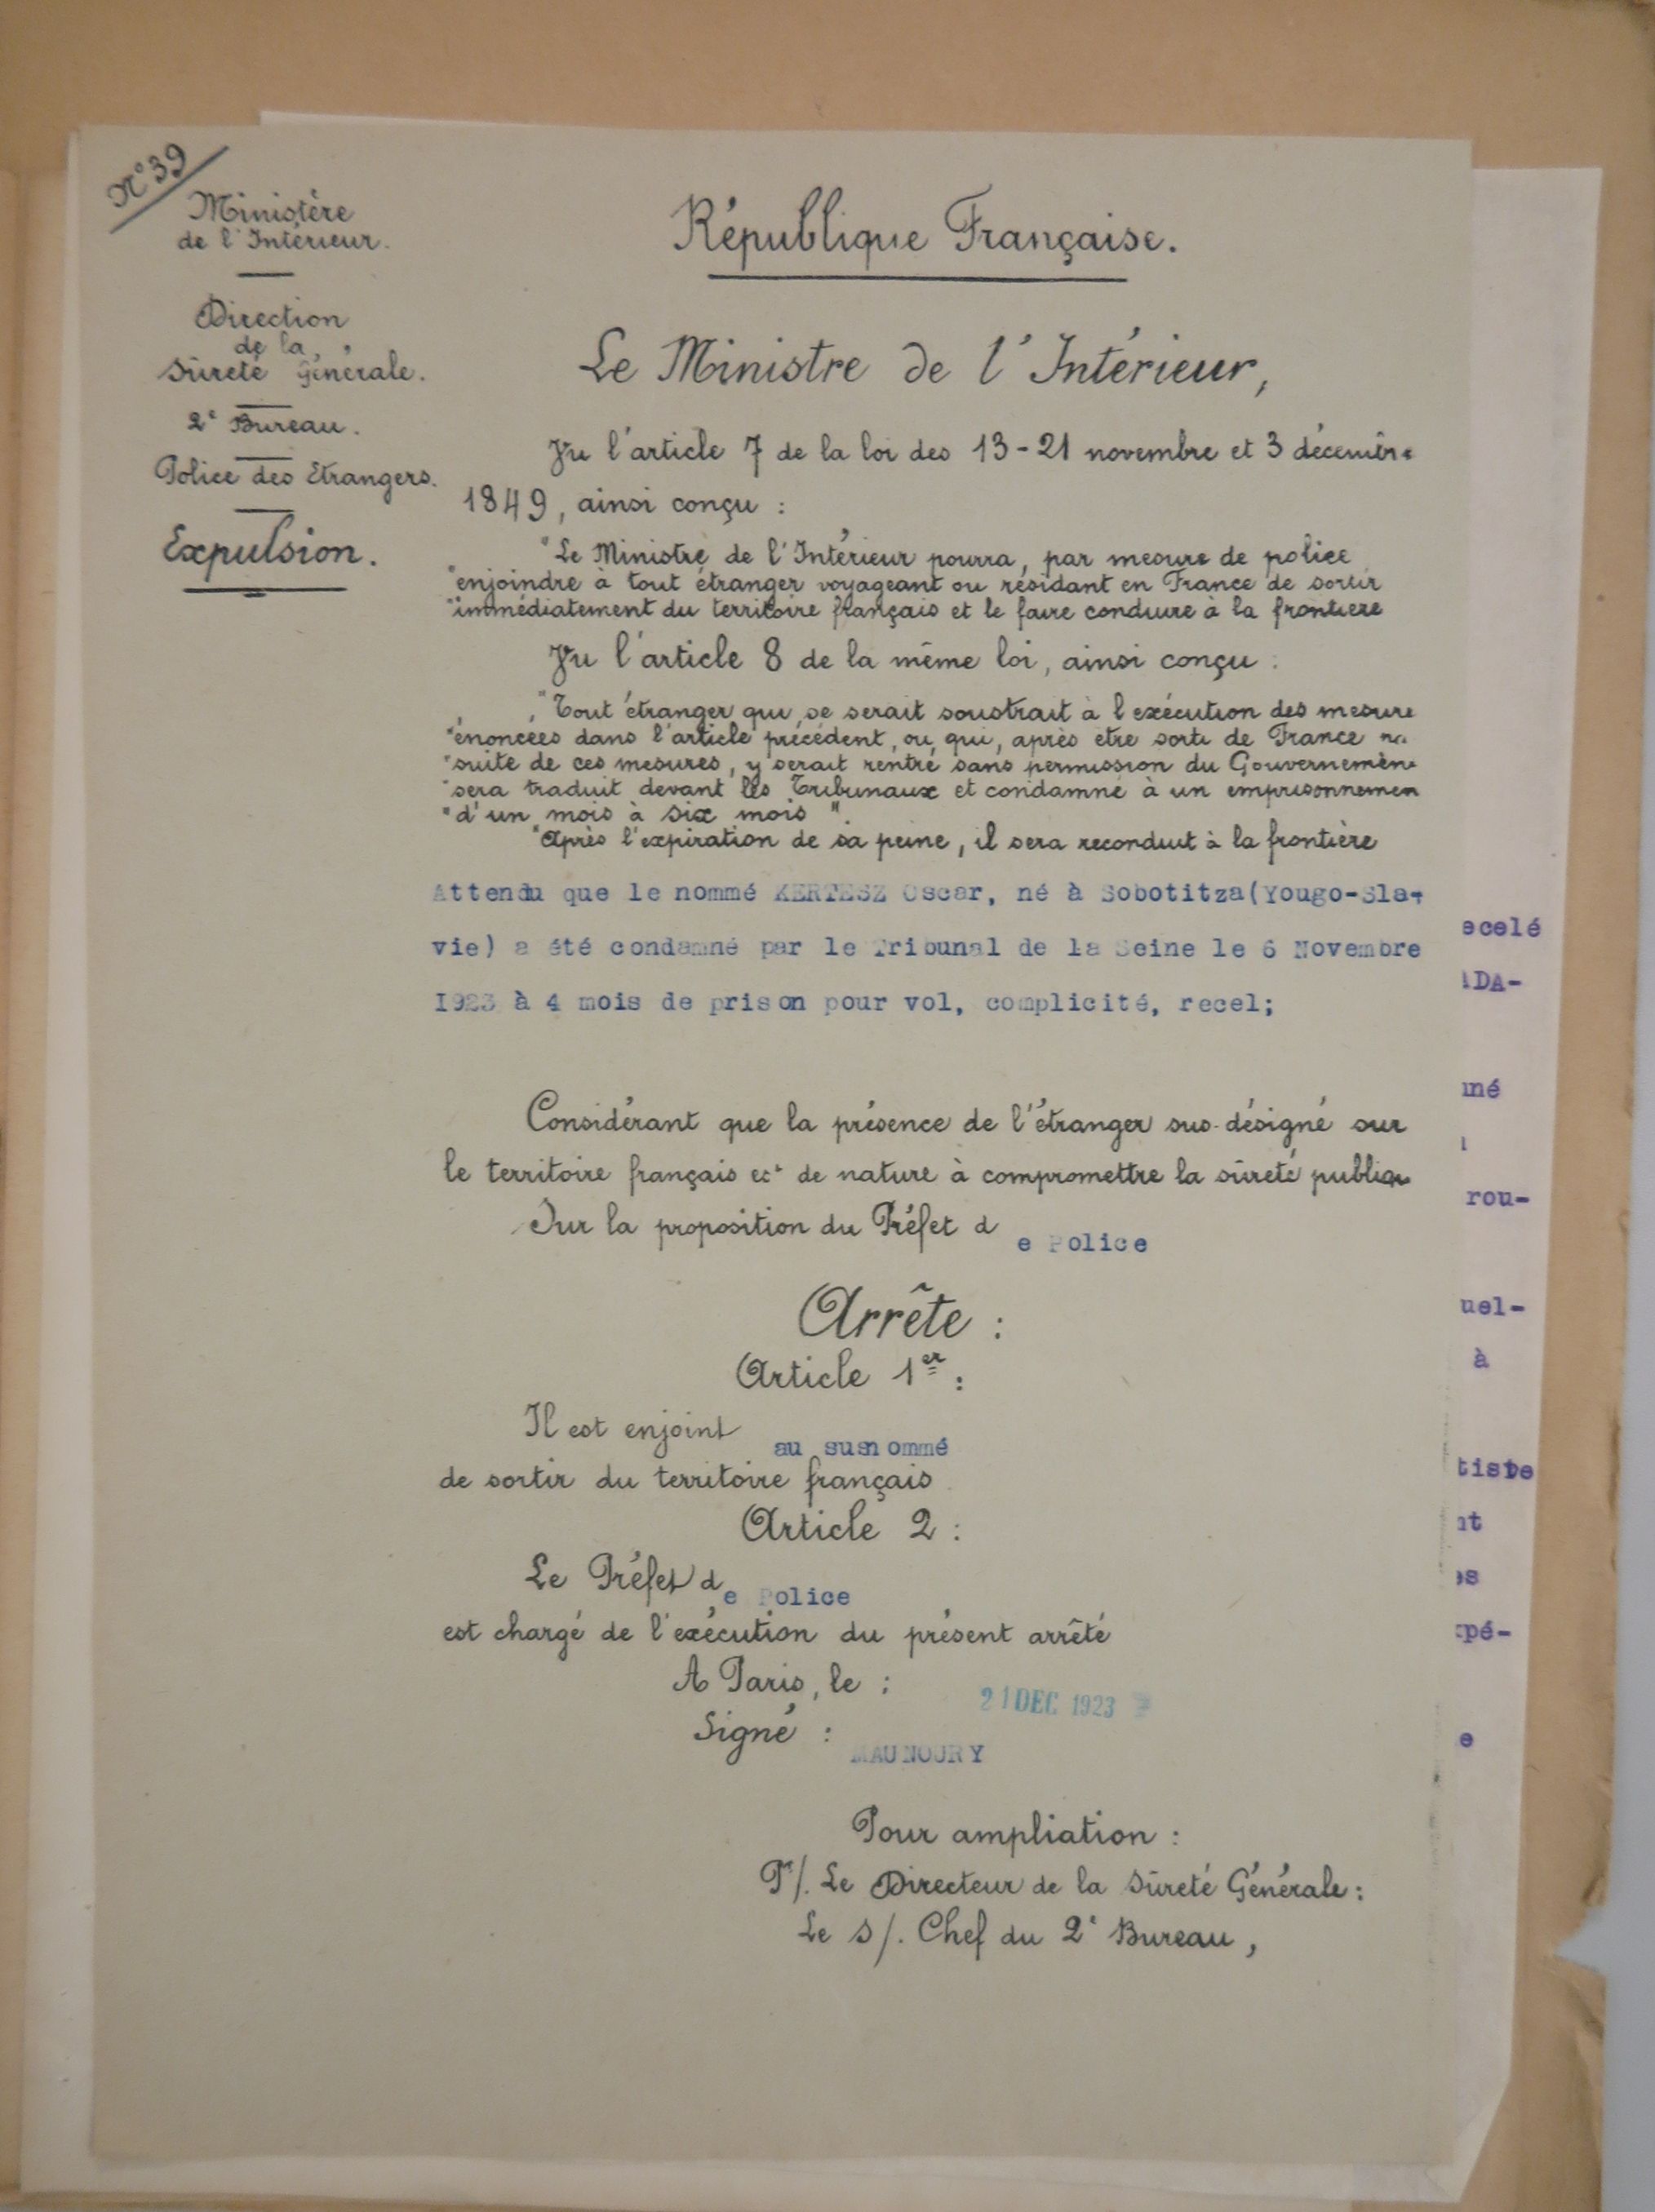 N° 39
Ministère
de l'Intérieur.
Direction
de la
Sûreté Générale.
2e Bureau.
Police des Etrangers.
Expulsion.
République Française.
Le Ministre de l'Intérieur,
Vu l'article 7 de la loi des 13-21 novembre et 3 décembre
1849, ainsi conçu :
"Le Ministre de l'Intérieur pourra, par mesure de police
"enjoindre à tout étranger voyageant ou résidant en France de sortir
"immédiatement du territoire français et le faire conduire à la frontière
Vu l'article 8 de la même loi, ainsi conçu :
"Tout étranger qui se serait soustrait à l'exécution des mesure
"énoncées dans l'article précédent, ou qui, après être sorti de France
"suite de ces mesures, y serait rentré sans permission du Gouvernemen
"sera traduit devant les Tribunaux et condamné à un emprisonnemen
"d'un mois à six mois".
"Après l'expiration de sa peine, il sera reconduit à la frontière
Attendu que le nommé KERTESZ Oscar, né à Sobotitza(Yougo-Sla-
vie) a été condamné par le Tribunal de la Seine le 6 Novembre
I923 à 4 mois de prison pour vol, complicité, recel;
Considérant que la présence de l'étranger sus-désigné sur
le territoire français est de nature à compromettre la sûreté publique
Sur la proposition du Préfet de Police
Arrête :
Article 1er :
Il est enjoint au susnommé
de sortir du territoire français
Article 2 :
Le Préfet de Police
est chargé de l'exécution du présent arrêté
A Paris, le : 21 DEC 1923
Signé : MAUNOURY
Pour ampliation :
Pr/. Le Directeur de la Sûreté Générale :
Le S/. Chef du 2e Bureau,
ecelé
ADA-
mé
rou-
uel-
à
tiste
nt
es
xpé-
e